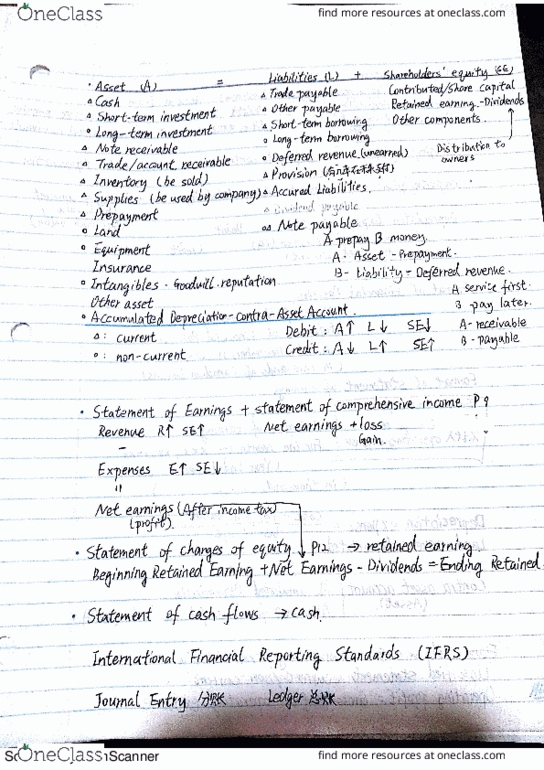 OneClass find more resources at oneclass.com
• Asset (A) = Liabilities (L) + Shareholders' equity (SE)
△ Cash △ Trade payable Contributed/Share capital
△ Short-term investment △ Other payable Retained earning - Dividends
○ Long-term investment △ Short-term borrowing Other components
△ Note receivable ○ Long-term borrowing Distribution to owners
△ Trade/account receivable ○ Deferred revenue (unearned)
△ Inventory (be sold) △ Provision
△ Supplies (be used by company) △ Accured Liabilities
△ Prepayment Dividend payable
○ Land Note payable
○ Equipment A prepay B money
Insurance A - Asset - Prepayment.
○ Intangibles - Goodwill - reputation B - Liability - Deferred revenue.
Other asset A service first
○ Accumulated Depreciation - contra - Asset Account B pay later
△: current Debit: A↑ L↓ SE↓ A - receivable
○: non-current Credit: A↓ L↑ SE↑ B - payable
• Statement of Earnings + statement of comprehensive income P9
Revenue R↑ SE↑ Net earnings + loss
- Gain.
Expenses E↑ SE↓
=
Net earnings (After income tax)
(profit)
• Statement of changes of equity P12 → retained earning
Beginning Retained Earning + Net Earnings - Dividends = Ending Retained
• Statement of cash flows → cash
International Financial Reporting Standards (IFRS)
Journal Entry Ledger
OneClass Scanner find more resources at oneclass.com